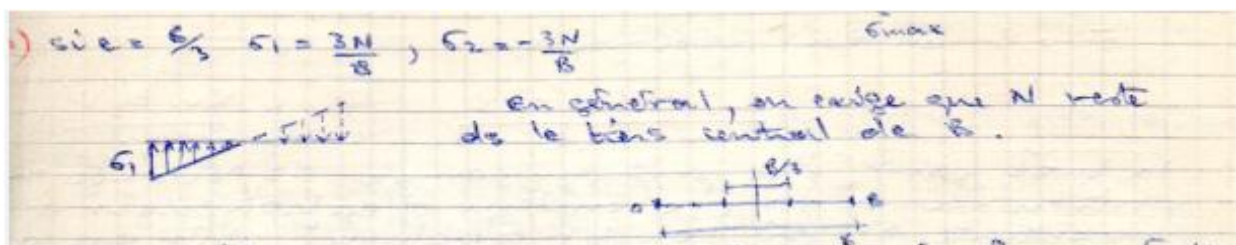 si e = B/3 σ1 = 3N/B , σ2 = - 3N/B
σmax
en général, on exige que N reste
ds le tiers central de B.
σ1
B/3
O B
B